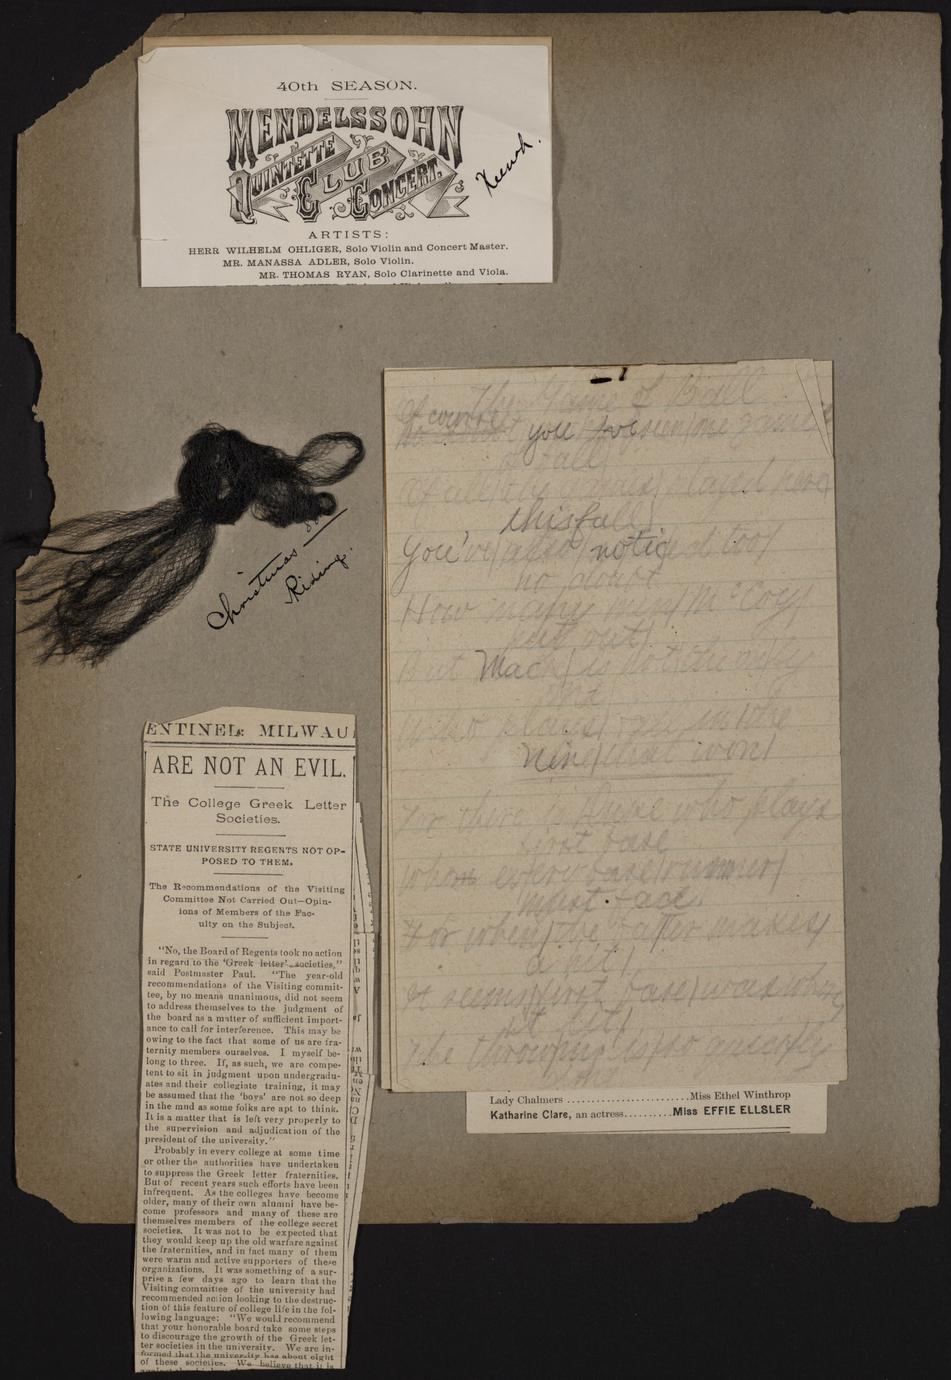 40th SEASON.
MENDELSSOHN
QUINTETTE
CLUB
CONCERT.
ARTISTS:
HERR WILHELM OHLIGER, Solo Violin and Concert Master.
MR. MANASSA ADLER, Solo Violin.
MR. THOMAS RYAN, Solo Clarinette and Viola.
Christmas
Riding.
The Game of Ball
Of course
you
game
of ball
Of all the games played here
this fall
You've also noticed too
no doubt
How many men McCoy
put out
But Mack is not the only
one
Who plays
Nine that won
For there is who plays
first base
Whom every base runner
must face.
For when the batter makes
a hit
It seems first base was where
it lit
The throwing also
ENTINEL: MILWAU
ARE NOT AN EVIL.
The College Greek Letter
Societies.
STATE UNIVERSITY REGENTS NOT OP-
POSED TO THEM.
The Recommendations of the Visiting
Committee Not Carried Out—Opin-
ions of Members of the Fac-
ulty on the Subject.
"No, the Board of Regents took no action
in regard to the 'Greek letter' societies,"
said Postmaster Paul. "The year-old
recommendations of the Visiting commit-
tee, by no means unanimous, did not seem
to address themselves to the judgment of
the board as a matter of sufficient import-
ance to call for interference. This may be
owing to the fact that some of us are fra-
ternity members ourselves. I myself be-
long to three. If, as such, we are compe-
tent to sit in judgment upon undergradu-
ates and their collegiate training, it may
be assumed that the 'boys' are not so deep
in the mud as some folks are apt to think.
It is a matter that is left very properly to
the supervision and adjudication of the
president of the university."
Probably in every college at some time
or other the authorities have undertaken
to suppress the Greek letter fraternities.
But of recent years such efforts have been
infrequent. As the colleges have become
older, many of their own alumni have be-
come professors and many of these are
themselves members of the college secret
societies. It was not to be expected that
they would keep up the old warfare against
the fraternities, and in fact many of them
were warm and active supporters of these
organizations. It was something of a sur-
prise a few days ago to learn that the
Visiting committee of the university had
recommended action looking to the destruc-
tion of this feature of college life in the fol-
lowing language: "We would recommend
that your honorable board take some steps
to discourage the growth of the Greek let-
ter societies in the university. We are in-
formed that the university has about eight
of these societies. We believe that it is
Lady Chalmers ........................Miss Ethel Winthrop
Katharine Clare, an actress..........Miss EFFIE ELLSLER